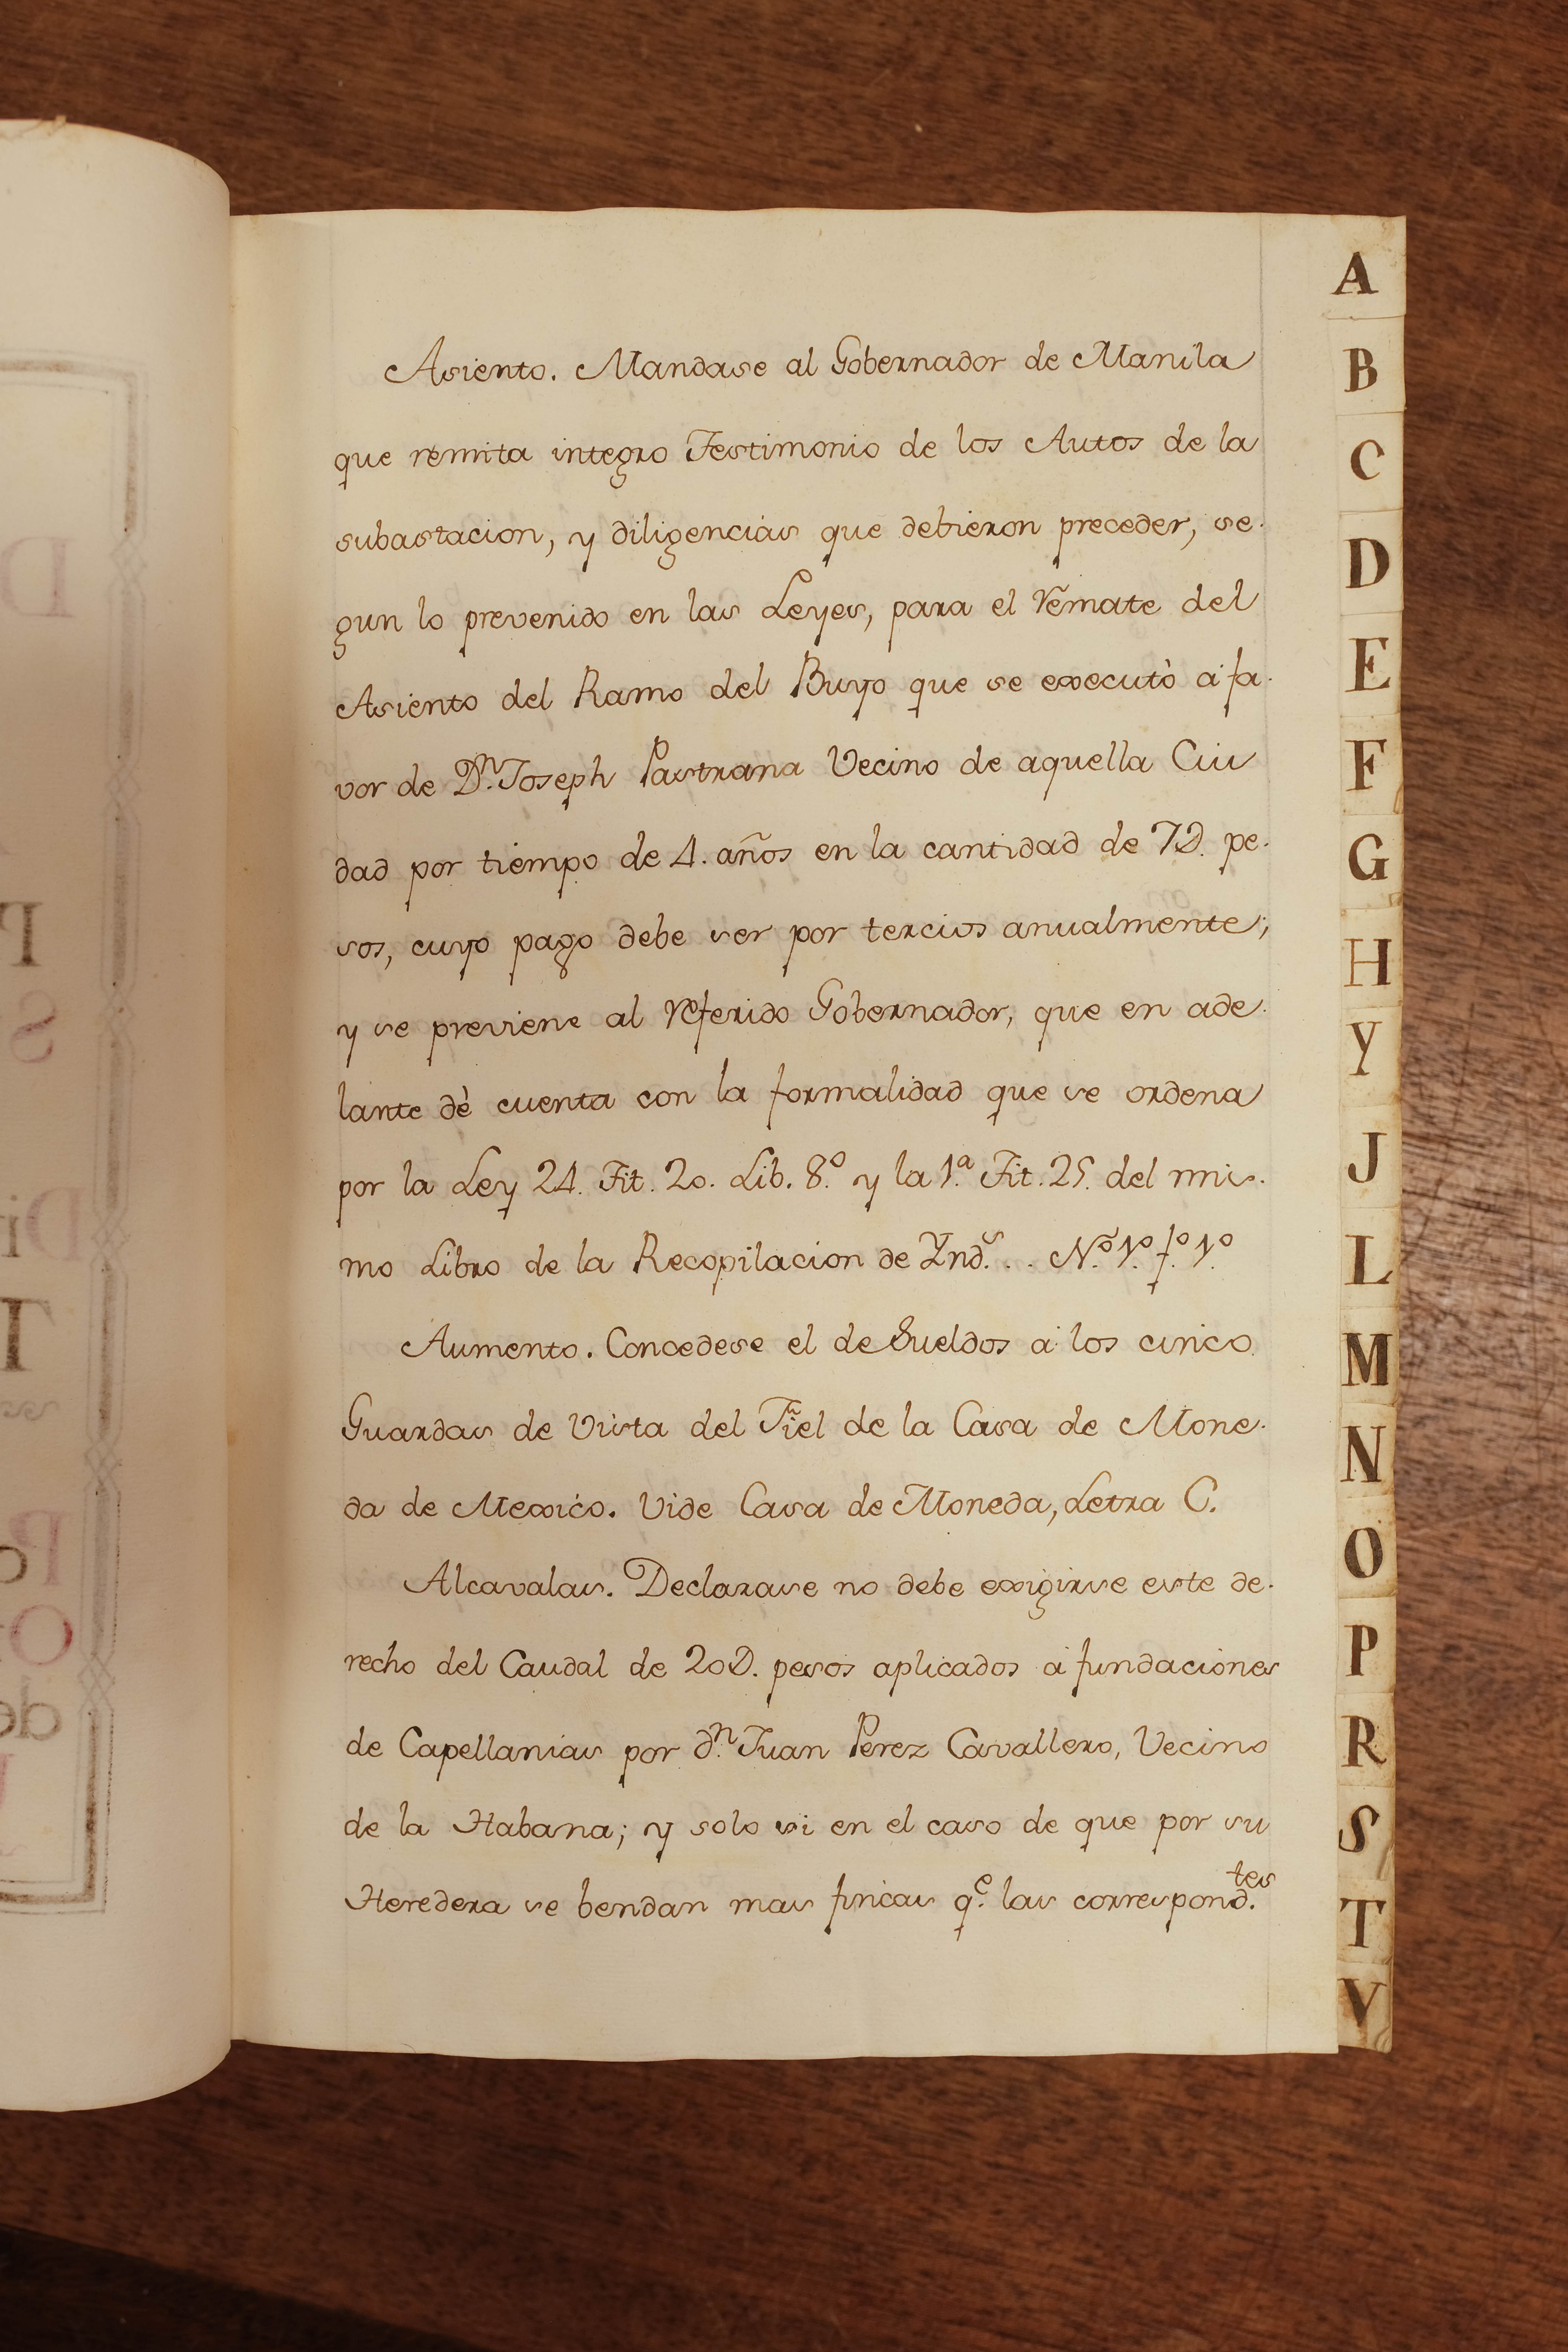 Asiento. Mandase al Gobernador de Manila
que remita integro Testimonio de los Autos de la
subastacion, y diligencias que debieron preceder, se-
gun lo prevenido en las Leyes, para el remate del
Asiento del Ramo del Buyo que se executò à fa-
vor de Dn. Joseph Pastrana Vecino de aquella Ciu
dad por tiempo de 4. años en la cantidad de 7D. pe-
sos, cuyo pago debe ser por tercios anualmente;
y se previene al referido Gobernador, que en ade-
lante dè cuenta con la formalidad que se ordena
por la Ley 24. Tit. 20. Lib. 8.º y la 1.ª Tit. 25. del mis-
mo Libro de la Recopilacion de Ynds. . . N.º 1.º f.º 1.º
Aumento. Concedese el de Sueldos à los cinco
Guardas de Vista del Fiel de la Casa de Mone-
da de Mexico. Vide Casa de Moneda, Letra C.
Alcavalas. Declarase no debe exigirse este de-
recho del Caudal de 20D. pesos aplicados à fundaciones
de Capellanias por dn. Juan Perez Cavallero, Vecino
de la Habana; y solo si en el caso de que por su
Heredera se bendan mas fincas qe. las correspond.tes
A
B
C
D
E
F
G
H
Y
J
L
M
N
O
P
R
S
T
V